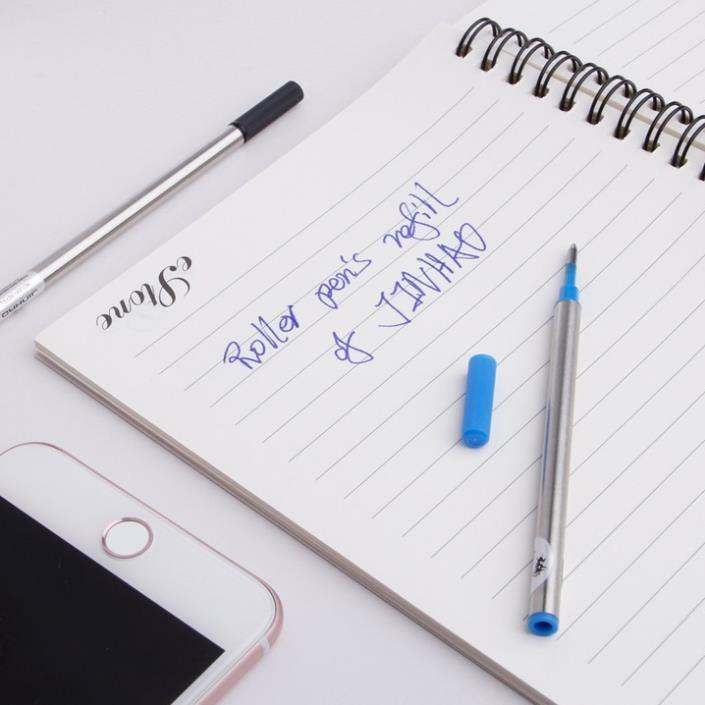 eStone
Roller pen's refill
of JINHAO
JINHAO